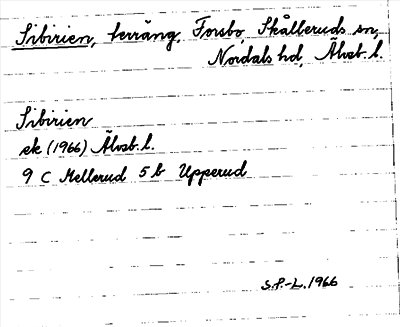 Sibirien, terräng, Forsbo, Skålleruds sn,
Nordals hd, Älvsb. l.
Sibirien
ek (1966) Älvsb. l.
9 C Mellerud 5 b Upperud
S.P.-L. 1966